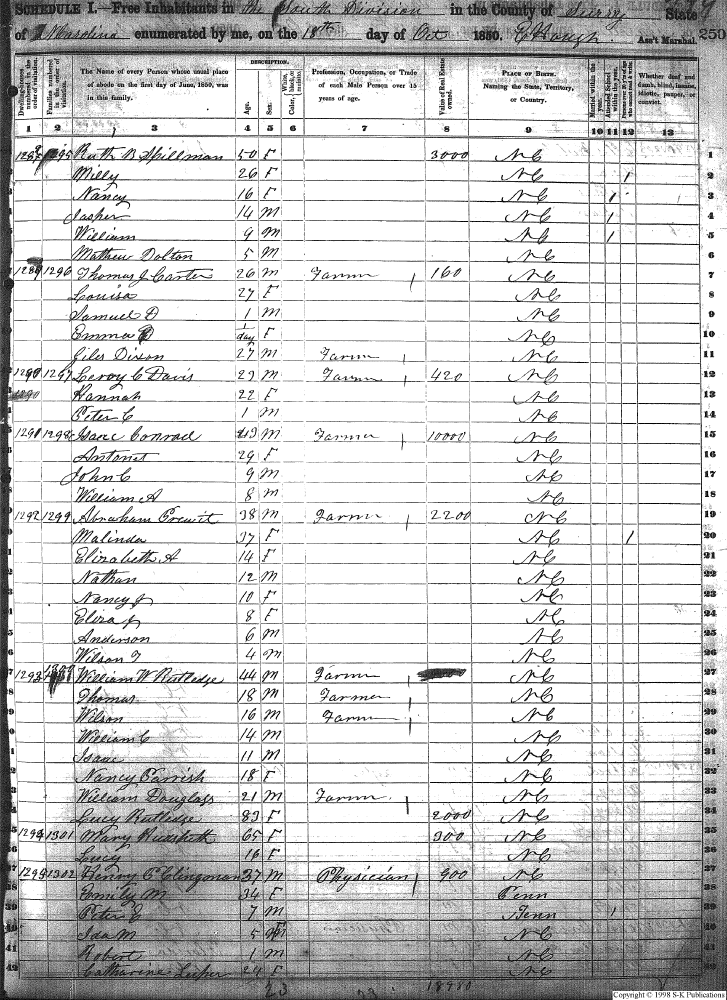 SCHEDULE I.—Free Inhabitants in the South Division in the County of Surry State
of N Carolina enumerated by me, on the 18th day of Oct 1850. Ass't Marshal. 250
DESCRIPTION.
Dwelling-houses numbered in the order of visitation.
Families numbered in the order of visitation.
The Name of every Person whose usual place of abode on the first day of June, 1850, was in this family.
Age.
Sex.
White, black, or mulatto. Color,
Profession, Occupation, or Trade of each Male Person over 15 years of age.
Value of Real Estate owned.
PLACE OF BIRTH. Naming the State, Territory, or Country.
Married within the year.
Whether deaf and dumb, blind, insane, idiotic, pauper, or convict.
1 2 3 4 5 6 7 8 9 10 11 12 13
1295 Ruth B Spillman 50 F 3000 NC 1
Milly 26 F NC 1 2
Nancy 16 F NC 1 3
Jasper 14 M NC 1 4
William 9 M NC 1 5
Mathew Dolton 5 M NC 6
1289 1296 Thomas J Carter 26 M Farmer 160 NC 7
Louisa 27 F NC 8
Samuel D 1 M NC 9
Emma 1 day F NC 10
Giles Dixon 27 M Farmer NC 11
1290 1297 Leroy C Davis 23 M Farmer 420 NC 12
1290 Hannah 22 F NC 13
Peter C 1 M NC 14
1291 1298 Isaac Conrad 43 M Farmer 10000 NC 15
Antonet 29 F NC 16
John C 9 M NC 17
William A 8 M NC 18
1292 1299 Abraham Prewit 38 M Farmer 2200 NC 19
Malinda 37 F NC 1 20
Elizabeth A 14 F NC 21
Nathan 12 M NC 22
Nancy J 10 F NC 23
Eliza J 8 F NC 24
Anderson 6 M NC 25
Wilson T 4 M NC 26
1293 1300 William W Rutledge 44 M Farmer NC 27
Thomas 18 M Farmer NC 28
Wilson 16 M Farmer NC 29
William C 14 M NC 30
Isaac 11 M NC 31
Nancy Parrish 18 F NC 32
William Douglass 21 M Farmer NC 33
Lucy Rutledge 83 F 2000 NC 34
1294 1301 Mary Hudspeth 65 F 300 NC 35
Lucy 16 F NC 36
1295 1302 Henry C Clingonan 37 M Physician 900 NC 37
Emily M 34 F Penn 38
Peter C 7 M Tenn 1 39
Ida M 5 NC 40
Robert 1 M NC 41
Catharine Leiper 24 F NC 42
23 18980
Copyright © 1998 S-K Publications